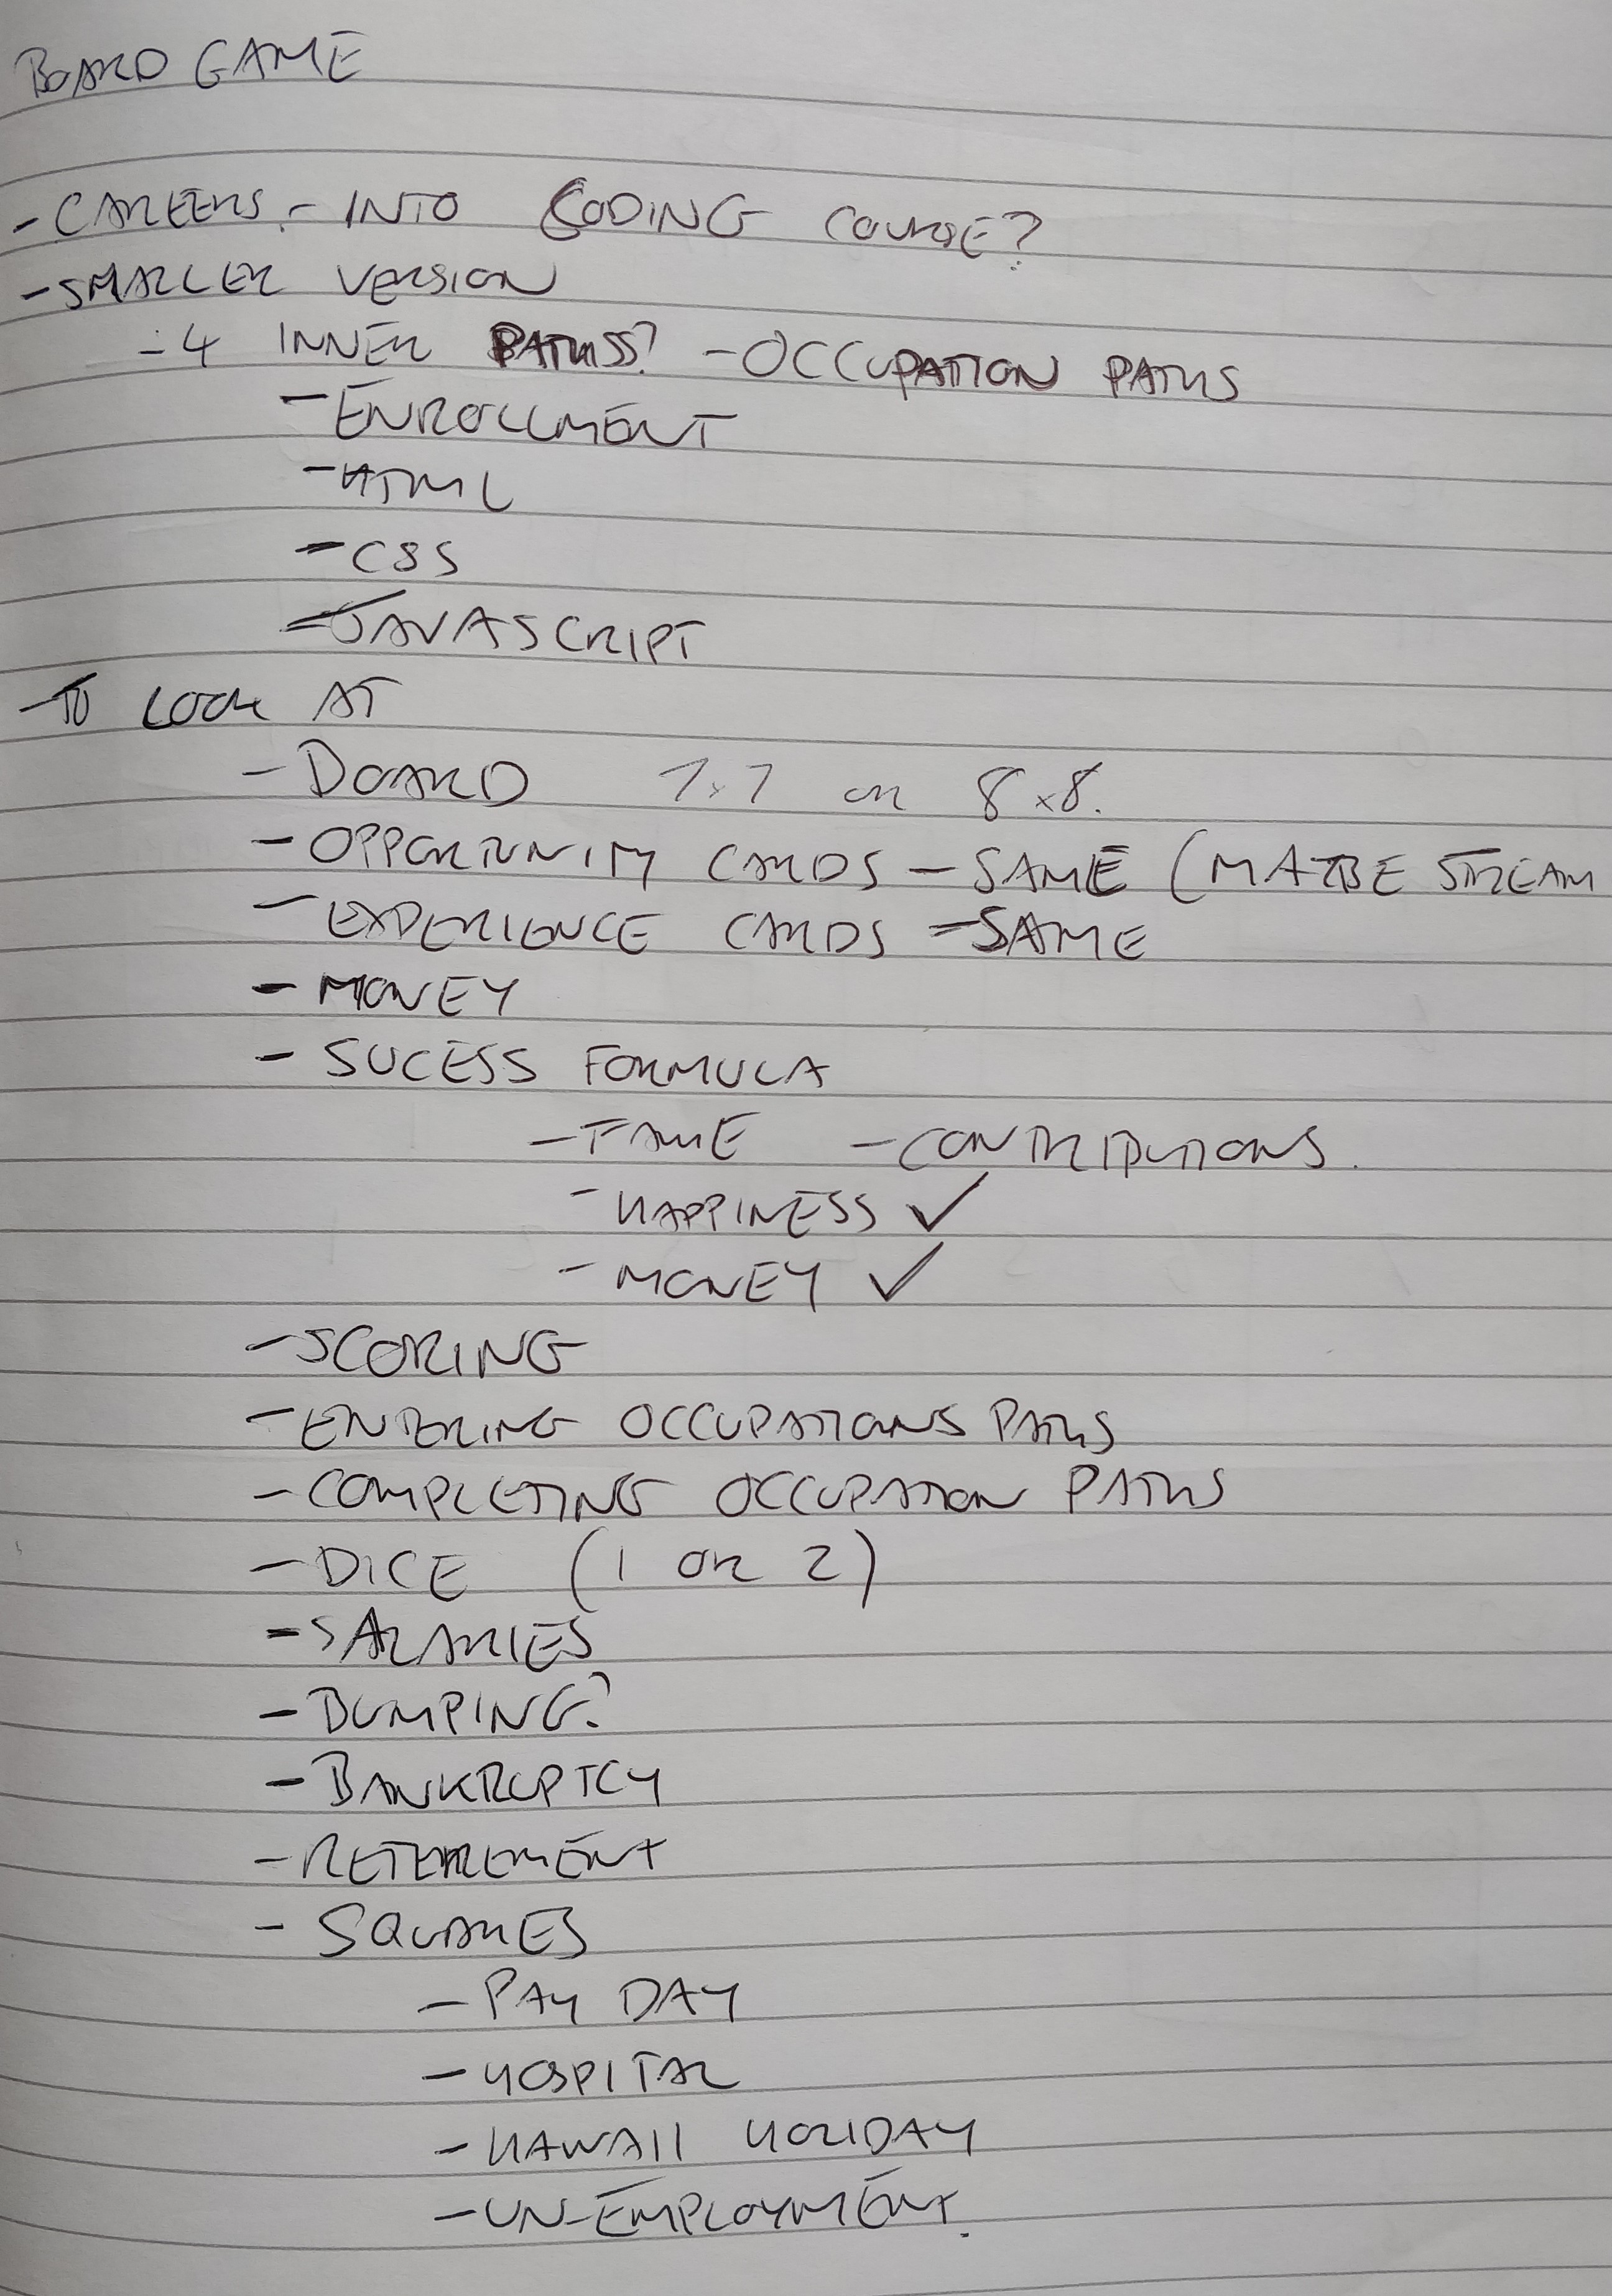 BOARD GAME
- CAREERS - INTO CODING COURSE?
- SMALLER VERSION
- 4 INNER PATHS? - OCCUPATION PATHS
- ENROLLMENT
- HTML
- CSS
- JAVASCRIPT
- TO LOOK AT
- BOARD 7x7 OR 8x8.
- OPPORTUNITY CARDS - SAME (MAYBE STREAM
- EXPERIENCE CARDS - SAME
- MONEY
- SUCESS FORMULA
- FAME - CONTRIBUTIONS.
- HAPPINESS ✓
- MONEY ✓
- SCORING
- ENTERING OCCUPATIONS PATHS
- COMPLETING OCCUPATION PATHS
- DICE (1 OR 2)
- SALARIES
- BUMPING?
- BANKRUPTCY
- RETEREMENT
- SQUARES
- PAY DAY
- HOSPITAL
- HAWAII HOLIDAY
- UN-EMPLOYMENT.